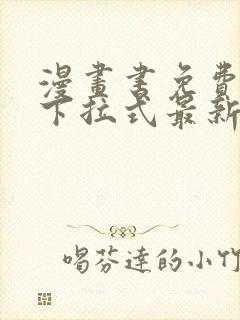 漫畫書免費
下拉式最新
喝芬達的小竹